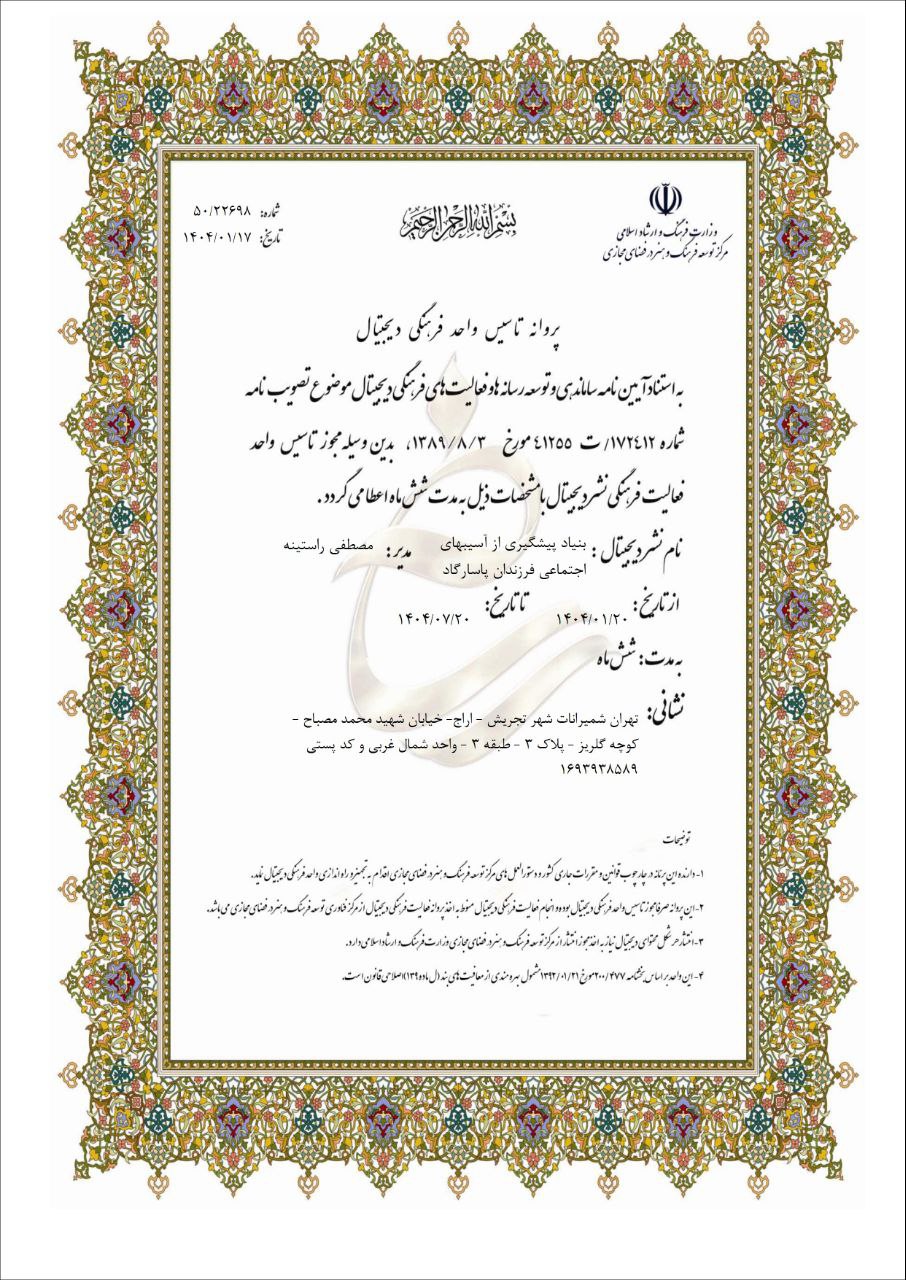 بسم الله الرحمن الرحیم
وزارت فرهنگ و ارشاد اسلامی
مرکز توسعه فرهنگ و هنر در فضای مجازی
شماره: ۵۰/۲۲۶۹۸
تاریخ: ۱۴۰۴/۰۱/۱۷
پروانه تاسیس واحد فرهنگی دیجیتال
به استناد آیین نامه ساماندهی و توسعه رسانه ها و فعالیت های فرهنگی دیجیتال موضوع تصویب نامه
شماره ۱۷۲۴۱۲/ ت ۴۱۲۵۵ مورخ ۱۳۸۹/۸/۳، بدین وسیله مجوز تاسیس واحد
فعالیت فرهنگی نشر دیجیتال با مشخصات ذیل به مدت شش ماه اعطا می گردد.
نام نشر دیجیتال: بنیاد پیشگیری از آسیبهای اجتماعی فرزندان پاسارگاد مدیر: مصطفی راستینه
از تاریخ: ۱۴۰۴/۰۱/۲۰ تا تاریخ: ۱۴۰۴/۰۷/۲۰
به مدت: شش ماه
نشانی: تهران شمیرانات شهر تجریش - اراج- خیابان شهید محمد مصباح -
کوچه گلریز - پلاک ۳ - طبقه ۳ - واحد شمال غربی و کد پستی
۱۶۹۳۹۳۸۵۸۹
توضیحات
۱- دارنده این پروانه در چارچوب قوانین و مقررات جاری کشور و دستورالعمل های مرکز توسعه فرهنگ و هنر در فضای مجازی اقدام به تجهیز و راه اندازی واحد فرهنگی دیجیتال نماید.
۲- این پروانه صرفا مجوز تاسیس واحد فرهنگی دیجیتال بوده و انجام فعالیت فرهنگی دیجیتال منوط به اخذ پروانه فعالیت فرهنگی دیجیتال از مرکز فناوری توسعه فرهنگ و هنر در فضای مجازی می باشد.
۳- انتشار هر شکل محتوای دیجیتال نیاز به اخذ مجوز انتشار از مرکز توسعه فرهنگ و هنر در فضای مجازی وزارت فرهنگ و ارشاد اسلامی دارد.
۴- این واحد بر اساس بخشنامه ۲۰۰/۴۷۷ مورخ ۱۳۹۲/۰۱/۲۱ مشمول بهره مندی از معافیت های بند (ل ماده ۱۳۹) اصلاحی قانون است.